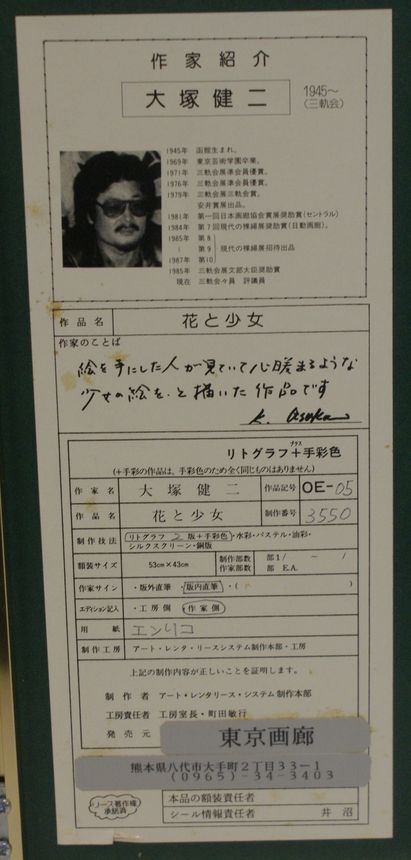 作家紹介
大塚健二
1945〜
(三軌会)
1945年 函館生まれ。
1969年 東京芸術学園卒業。
1971年 三軌会展準会員優賞。
1976年 三軌会展準会員優賞。
1979年 三軌会展三軌会賞。
安井賞展出品。
1981年 第一回日本画廊協会賞展奨励賞(セントラル)
1984年 第7回現代の裸婦展奨励賞(日動画廊)。
1985年 第8
｜ 第9 現代の裸婦展招待出品
1987年 第10
1985年 三軌会展文部大臣奨励賞
現在 三軌会々員 評議員
作品名 花と少女
作家のことば
絵を手にした人が見ていて心暖まるような
少女の絵を、と描いた作品です
リトグラフ+手彩色
プラス
(+手彩の作品は、手彩色のため全く同じものはありません)
作家名 大塚健二 作品記号 OE-05
作品名 花と少女 制作番号 3550
制作技法 リトグラフ2版+手彩色・水彩・パステル・油彩・
シルクスクリーン・銅版
額装サイズ 53cm×43cm 制作部数 部1/ 〜 /
作家部数 部 E.A.
作家サイン ・版外直筆・版内直筆・( )
エディション記入 ・工房側・作家側
用紙 エンリコ
制作工房 アート・レンタ・リースシステム制作本部・工房
上記の制作内容が正しいことを証明します。
制作者 アート・レンタリース・システム制作本部
工房責任者 工房室長・町田敏行
発売元 東京画廊
熊本県八代市大手町2丁目33-1
(0965)-34-3403
リース著作権
承諾済
本品の額装責任者
シール情報責任者 井沼